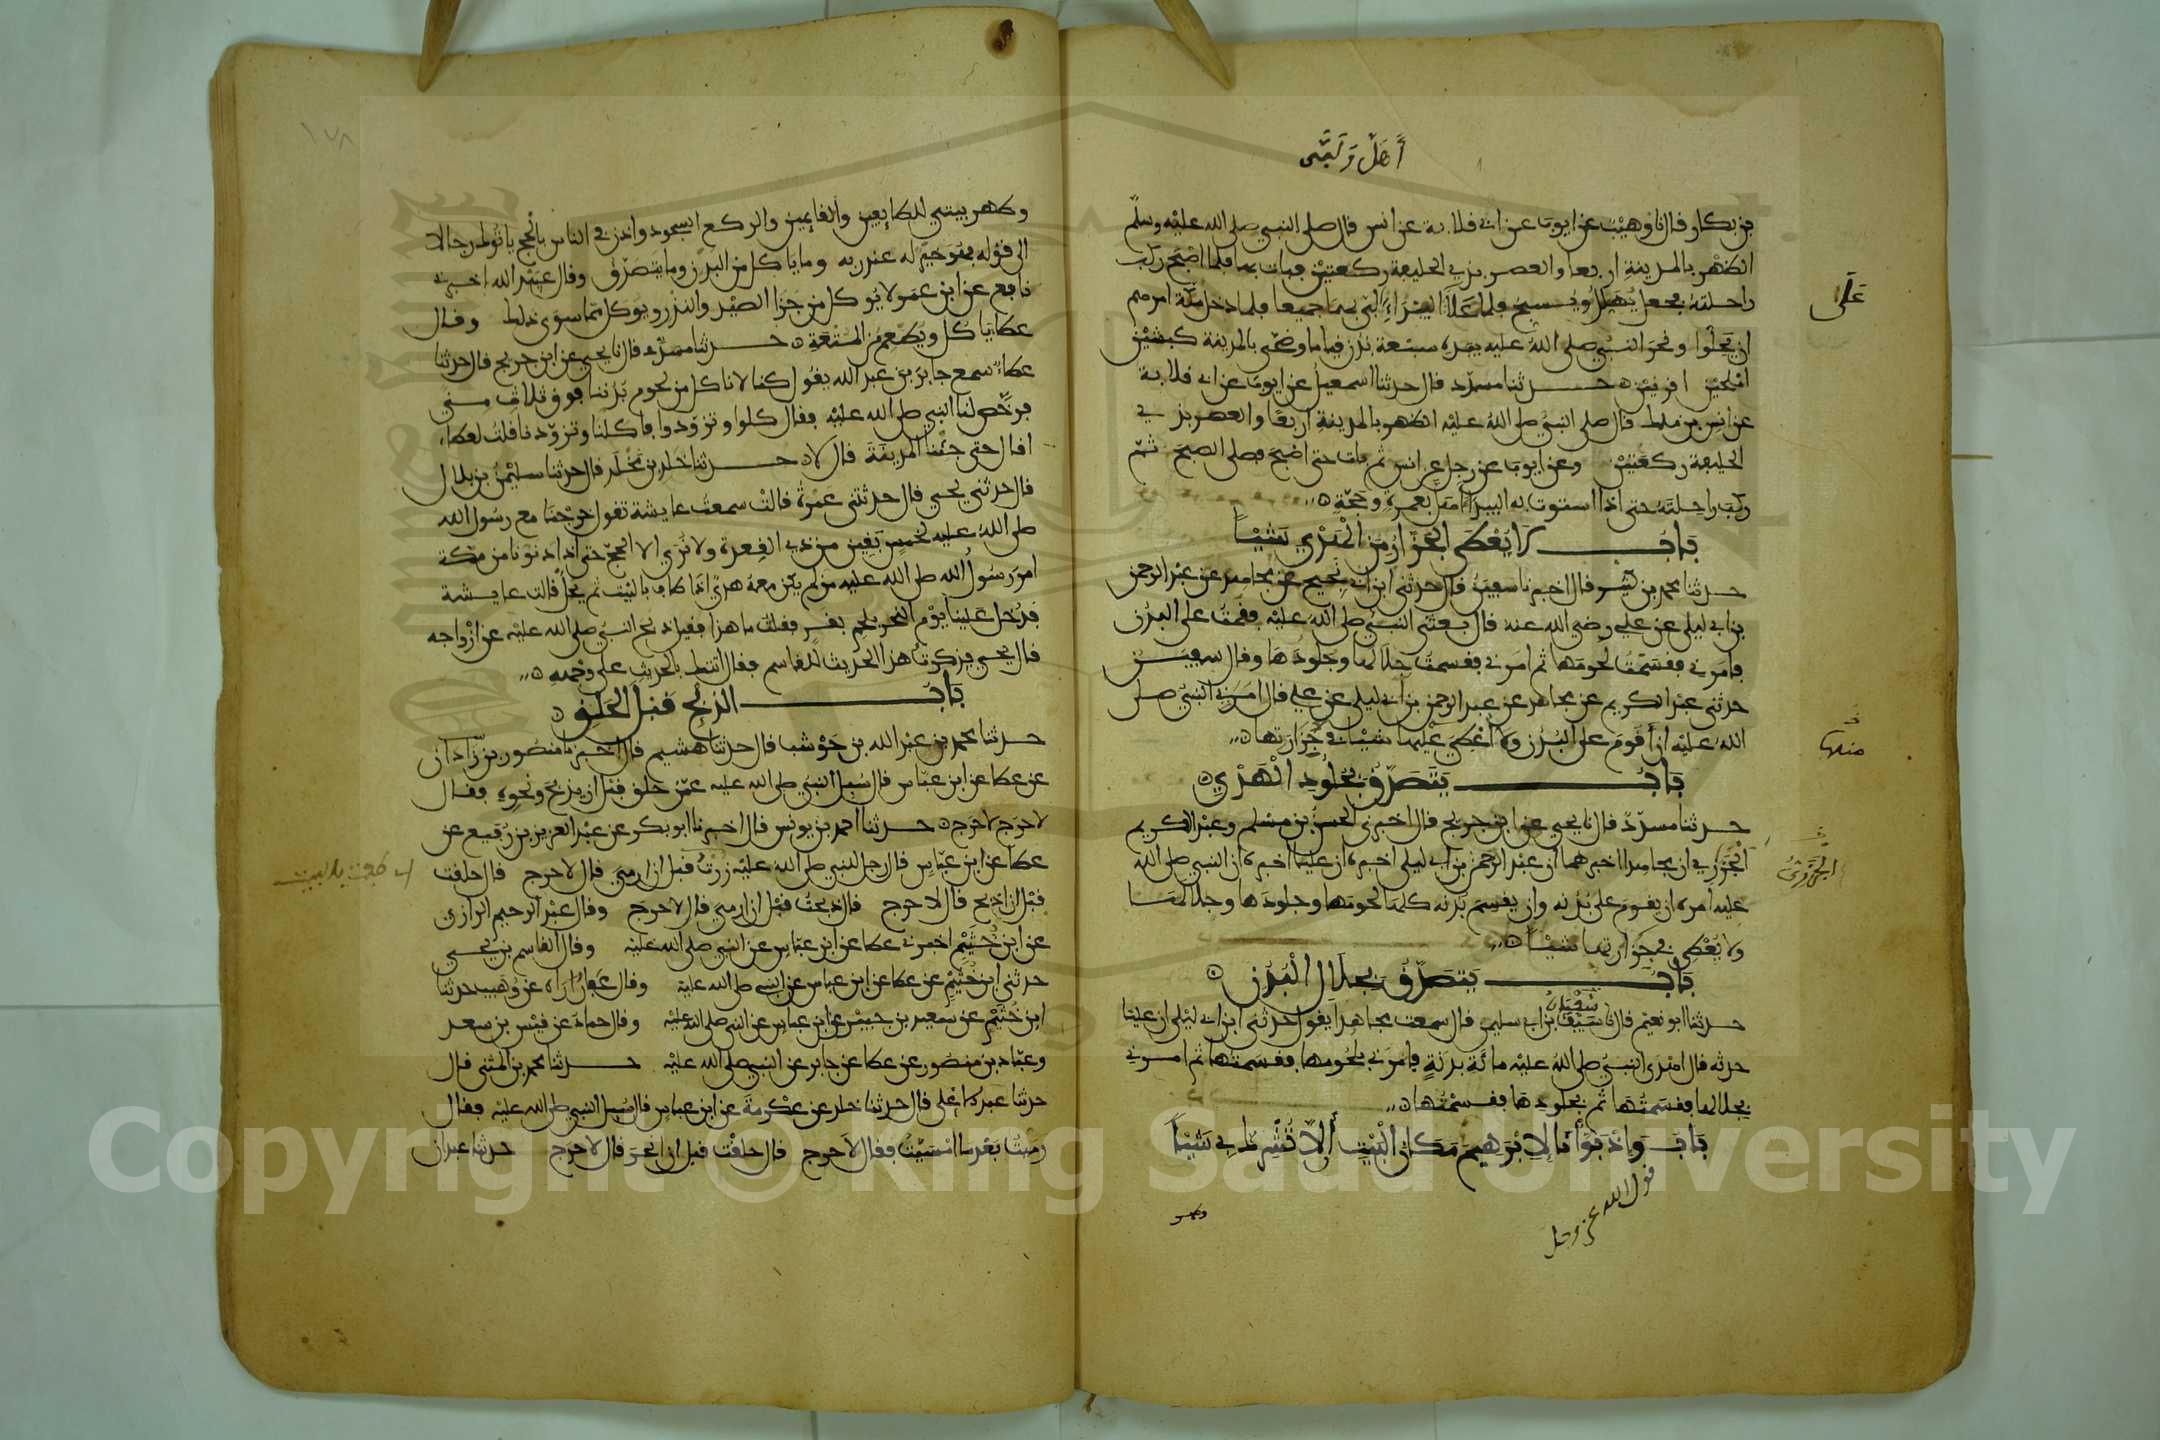 أهل ولبى
بن بكار قال نا وهيب عن ايوب عن ابي قلابة عن انس قال صلى النبي صلى الله عليه وسلم
الظهر بالمدينة اربعا والعصر بذي الحليفة ركعتين فبات بها فلما اصبح ركب
راحلته فجعل يهلل ويسبح فلما علا البيداء لبى بهما جميعا فلما دخل مكة امرهم
على
ان يحلوا ونحر النبي صلى الله عليه بيده سبعة بدن قياما وضحى بالمدينة كبشين
املحين اقرنين حدثنا مسدد قال حدثنا اسمعيل عن ايوب عن ابي قلابة
عن انس بن ملك قال صلى النبي صلى الله عليه الظهر بالمدينة اربعا والعصر بذي
الحليفة ركعتين وعن ايوب عن رجل عن انس ثم بات حتى اصبح فصلى الصبح ثم
ركب راحلته حتى اذا استوت به البيداء اهل بعمرة وحجة
باب لا يعطى الجزار من الهدي شيئا
حدثنا محمد بن كثير قال اخبرنا سفين قال حدثني ابن ابي نجيح عن مجاهد عن عبد الرحمن
بن ابي ليلى عن علي رضي الله عنه قال بعثني النبي صلى الله عليه فقمت على البدن
فامرني فقسمت لحومها ثم امرني فقسمت جلالها وجلودها وقال سفين
حدثني عبد الكريم عن مجاهد عن عبد الرحمن بن ابي ليلى عن علي قال امرني النبي صلى
الله عليه ان أقوم على البدن ولا أعطي عليها شيئا في جزارتها
منها
باب يتصدق بجلود الهدي
حدثنا مسدد قال نا يحيى عن ابن جريج قال اخبرني الحسن بن مسلم وعبد الكريم
الجزري ان مجاهدا اخبرهما ان عبد الرحمن بن ابي ليلى اخبره ان عليا اخبره ان النبي صلى الله
الجزري
عليه امره ان يقوم على بدنه وان يقسم بدنه كلها لحومها وجلودها وجلالها
ولا يعطي في جزارتها شيئا
باب يتصدق بجلال البدن
حدثنا ابو نعيم قال نا سيف بن ابي سليمن قال سمعت مجاهدا يقول حدثني ابن ابي ليلى ان عليا
حدثه قال اهدى النبي صلى الله عليه مائة بدنة فامرني بلحومها فقسمتها ثم امرني
بجلالها فقسمتها ثم بجلودها فقسمتها
باب واذ بوأنا لابرهيم مكان البيت ألا تشرك بي شيئا
قول الله عز وجل
وطهر
١٧٨
وطهر بيتي للطايفين والقايمين والركع السجود واذن في الناس بالحج ياتوك رجالا
الى قوله فهو خير له عند ربه وما ياكل من البدن وما يتصدق وقال عبيد الله اخبرني
نافع عن ابن عمر لا يوكل من جزا الصيد والنذر ويوكل مما سوى ذلك وقال
عطا ياكل ويطعم من المتعة حدثنا مسدد قال نا يحيى عن ابن جريج قال حدثنا
عطاء سمع جابر بن عبد الله يقول كنا لا ناكل من لحوم بدننا فوق ثلاث منى
فرخص لنا النبي صلى الله عليه فقال كلوا وتزودوا فاكلنا وتزودنا قلت لعطاء
اقال حتى جئنا المدينة قال لا حدثنا خلد بن مخلد قال حدثنا سليمن بن بلال
قال حدثني يحيى قال حدثتني عمرة قالت سمعت عايشة تقول خرجنا مع رسول الله
صلى الله عليه لخمس بقين من ذي القعدة ولا نرى الا الحج حتى اذا دنونا من مكة
امر رسول الله صلى الله عليه من لم يكن معه هدي اذا طاف بالبيت ثم يحل قالت عايشة
فدخل علينا يوم النحر بلحم بقر فقلت ما هذا فقيل ذبح النبي صلى الله عليه عن ازواجه
قال يحيى فذكرت هذا الحديث للقاسم فقال اتتك بالحديث على وجهه
باب الذبح قبل الحلق
حدثنا محمد بن عبد الله بن حوشب قال حدثنا هشيم قال اخبرنا منصور بن زاذان
عن عطا عن ابن عباس قال سئل النبي صلى الله عليه عمن حلق قبل ان يذبح ونحوه فقال
لا حرج لا حرج حدثنا احمد بن يونس قال اخبرنا ابو بكر عن عبد العزيز بن رفيع عن
عطا عن ابن عباس قال رجل للنبي صلى الله عليه زرت قبل ان ارمي قال لا حرج قال حلقت
اي طفت بالبيت
قبل ان اذبح قال لا حرج قال ذبحت قبل ان ارمي قال لا حرج وقال عبد الرحيم الرازي
عن ابن خثيم اخبرني عطا عن ابن عباس عن النبي صلى الله عليه وقال القاسم بن يحيى
حدثني ابن خثيم عن عطا عن ابن عباس عن النبي صلى الله عليه وقال عفان اراه عن وهيب حدثنا
ابن خثيم عن سعيد بن جبير عن ابن عباس عن النبي صلى الله عليه وقال حماد عن قيس بن سعد
وعباد بن منصور عن عطا عن جابر عن النبي صلى الله عليه حدثنا محمد بن المثنى قال
حدثنا عبد الاعلى قال حدثنا خلد عن عكرمة عن ابن عباس قال سئل النبي صلى الله عليه فقال
رميت بعد ما امسيت فقال لا حرج قال حلقت قبل ان انحر قال لا حرج حدثنا عبدان
Copyright © King Saud University